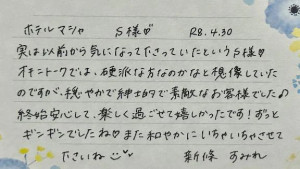 ホテルマシャ S様♡ R8.4.30
実は以前から気になって下さっていたというS様♡
オキニトークでは、硬派な方なのかなと想像していた
のですが、穏やかで紳士的で素敵なお客様でした♪
終始安心して、楽しく過ごせて嬉しかったです!ずっと
ギンギンでしたね♡また和やかにいちゃいちゃさせて
下さいね 新條 すみれ